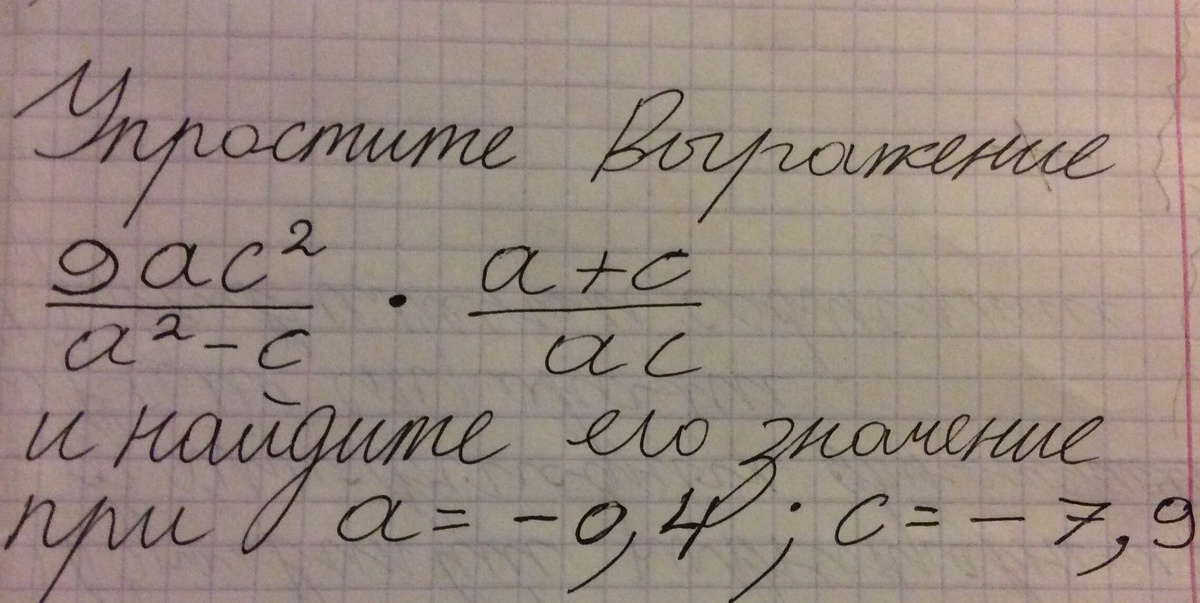 Упростите Выражение
9ac²/a²-c · a+c/ac
и найдите его значение
при a = -0,4; c = -7,9